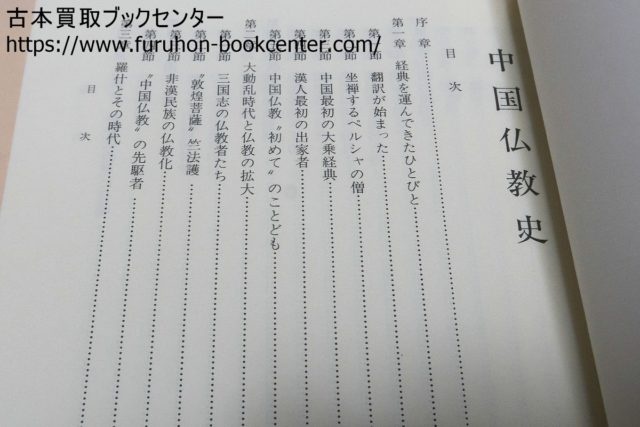 古本買取ブックセンター
https://www.furuhon-bookcenter.com/
中国仏教史
目次
序章
第一章 経典を運んできたひとびと
第一節 翻訳が始まった
第二節 坐禅するペルシャの僧
第三節 中国最初の大乗経典
第四節 漢人最初の出家者
第五節 中国仏教〝初めて〟のことども
第二章 大動乱時代と仏教の拡大
第一節 三国志の仏教者たち
第二節 〝敦煌菩薩〟竺法護
第三節 非漢民族の仏教化
第四節 〝中国仏教〟の先駆者
第三章 羅什とその時代
目次